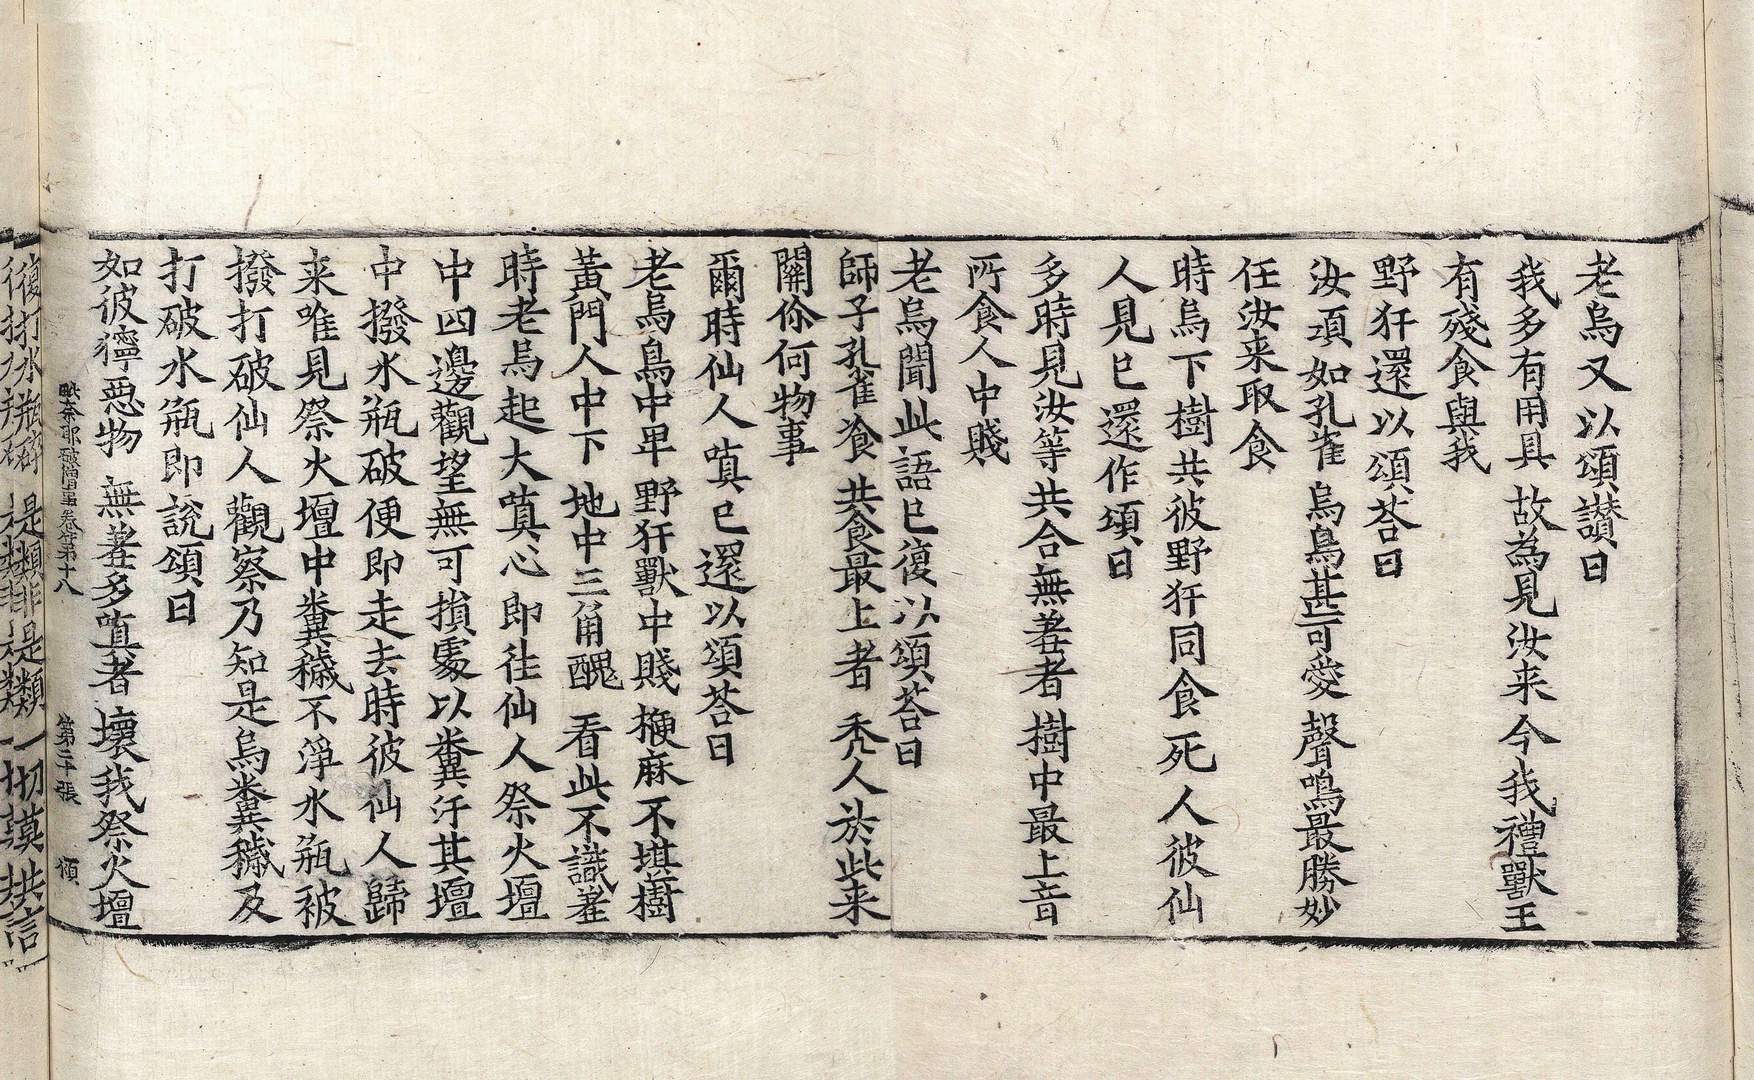 老烏又以頌讃曰
我多有用具 故為見汝来 今我禮獸王
有殘食與我
野犴還以頌荅曰
汝項如孔雀 烏鳥甚可愛 聲鳴最勝妙
任汝来取食
時烏下樹共彼野犴同食死人彼仙
人見已還作頌曰
多時見汝等 共合無羞者 樹中最上音
所食人中賤
老烏聞此語已復以頌荅曰
師子孔雀飡 共食最上者 禿人於此来
關你何物事
爾時仙人嗔已還以頌荅曰
老烏鳥中卑 野犴獸中賤 䓻麻不堪樹
黃門人中下 地中三角醜 看此不識羞
時老烏起大嗔心即往仙人祭火壇
中四邊觀望無可損處以糞汙其壇
中撥水瓶破便即走去時彼仙人歸
来唯見祭火壇中糞穢不淨水瓶被
撥打破仙人觀察乃知是烏糞穢及
打破水瓶即說頌曰
如彼獰惡物 無羞多嗔者 壞我祭火壇
毗奈耶破僧事卷第十八 第二十張 傾
復打水瓶破 是類非是類 一切莫共言